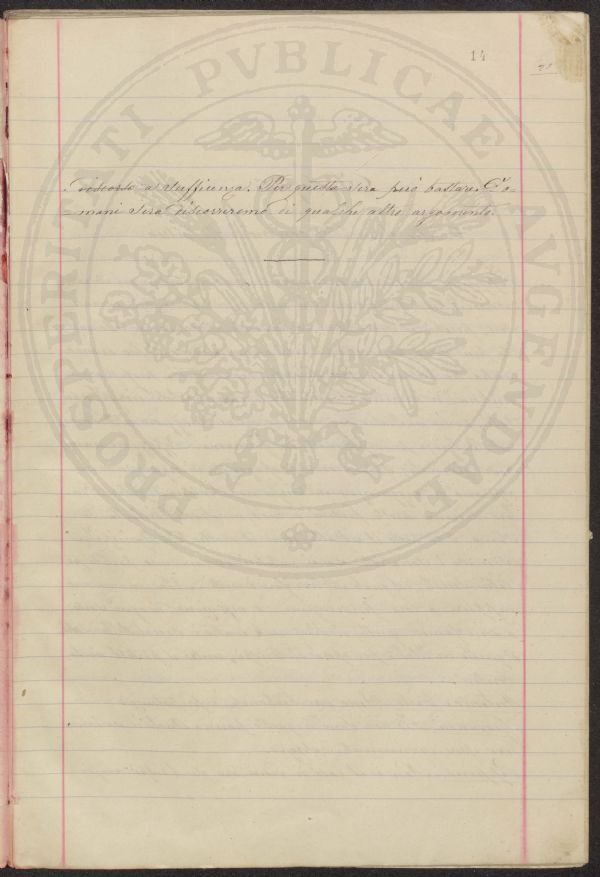 14
discorso a sufficienza. Per questa sera può bastare. Do-
mani sera discorreremo di qualche altro argomento.
PROSPERITATI PVBLICAE AVGENDAE